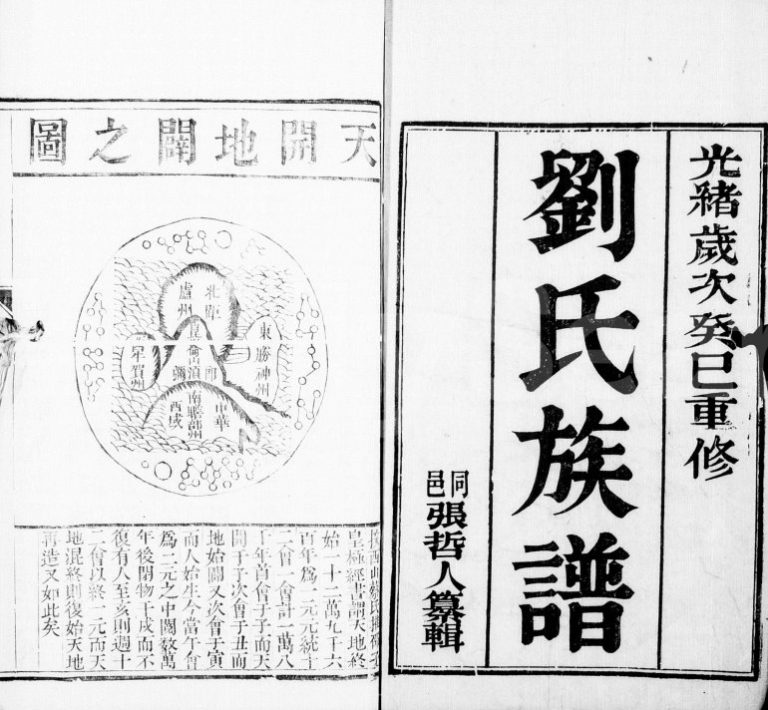 光緒歲次癸巳重修
劉氏族譜
同邑張哲人纂輯
天開地闢之圖
北
盧州
東勝神州
中華
南贍部州
西戎
皇極經書謂天地終
始十二萬九千六
百年為一元元統十
二會一會計一萬八
千年首會于子而天
開于子次會于丑而
地始闢又次會于寅
而人始生今當午會
為三元之中閱數萬
年後閉物于戌而不
復有人至亥則週十
二會以終一元而天
地混終則復始天地
再造又如此矣